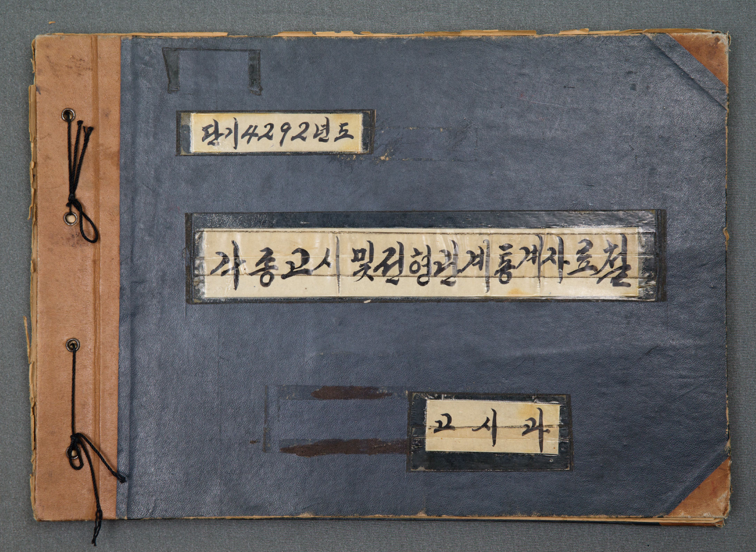 단기4292년도
각종고시 및 전형관계통계자료철
고시과